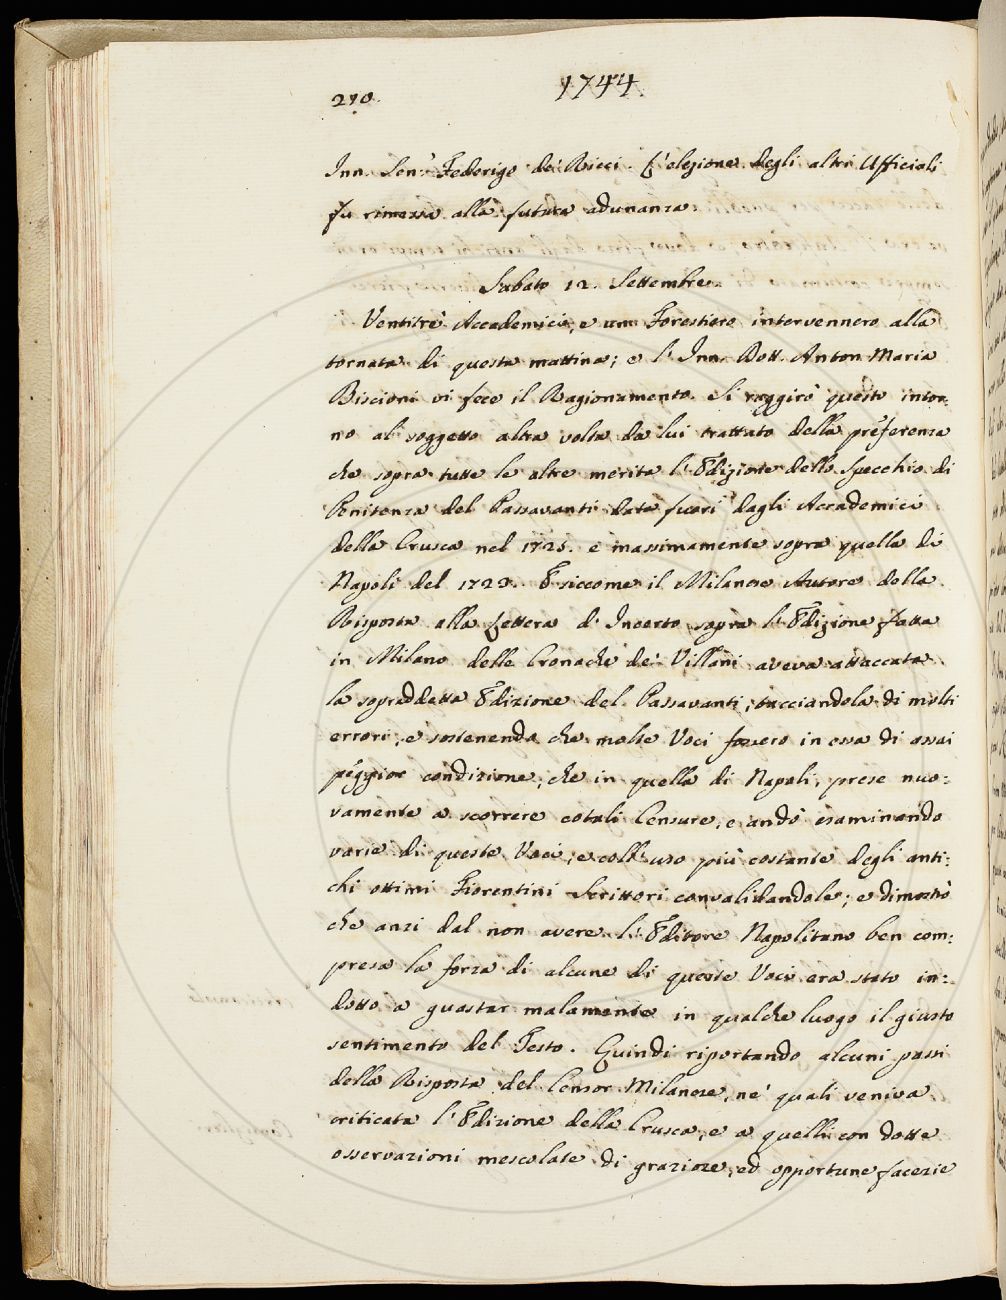 1744
290.
Inn. Sen.e Federigo de' Ricci. L'elezione degli altri Ufficiali
fu rimessa alla futura adunanza.
Sabato 12. Settembre.
Ventitrè Accademici, e un Forestiero intervennero alla
tornata di questa mattina; e l'Inn. Dott. Anton Maria
Biscioni vi fece il Ragionamento. Si raggirò questo intor:
no al soggetto altra volta da lui trattato della preferenza
che sopra tutte le altre merita l'Edizione dello Specchio di
Penitenza del Passavanti data fuori dagli Accademici
della Crusca nel 1725. e massimamente sopra quella di
Napoli del 1723. E siccome il Milanese Autore della
Risposta alla Lettera d'Incerto sopra l'Edizione fatta
in Milano delle Cronache de' Villani aveva attaccata
la sopraddetta Edizione del Passavanti, tacciandola di molti
errori, e sostenendo che molte Voci fossero in essa di assai
peggior condizione, che in quella di Napoli, prese nuo:
vamente a scorrere cotali Censure, e andò esaminando
varie di queste Voci, e coll'uso più costante degli anti:
chi ottimi Fiorentini Scrittori convalidandole; e dimostrò
che anzi dal non avere l'Editore Napolitano ben com:
presa la forza di alcune di queste Voci era stato in:
dotto a guastar malamente in qualche luogo il giusto
sentimento del Testo. Quindi riportando alcuni passi
della Risposta del Censor Milanese, ne' quali veniva
criticata l'Edizione della Crusca, e a quelli con dotte
osservazioni mescolate di graziose, ed opportune facezie